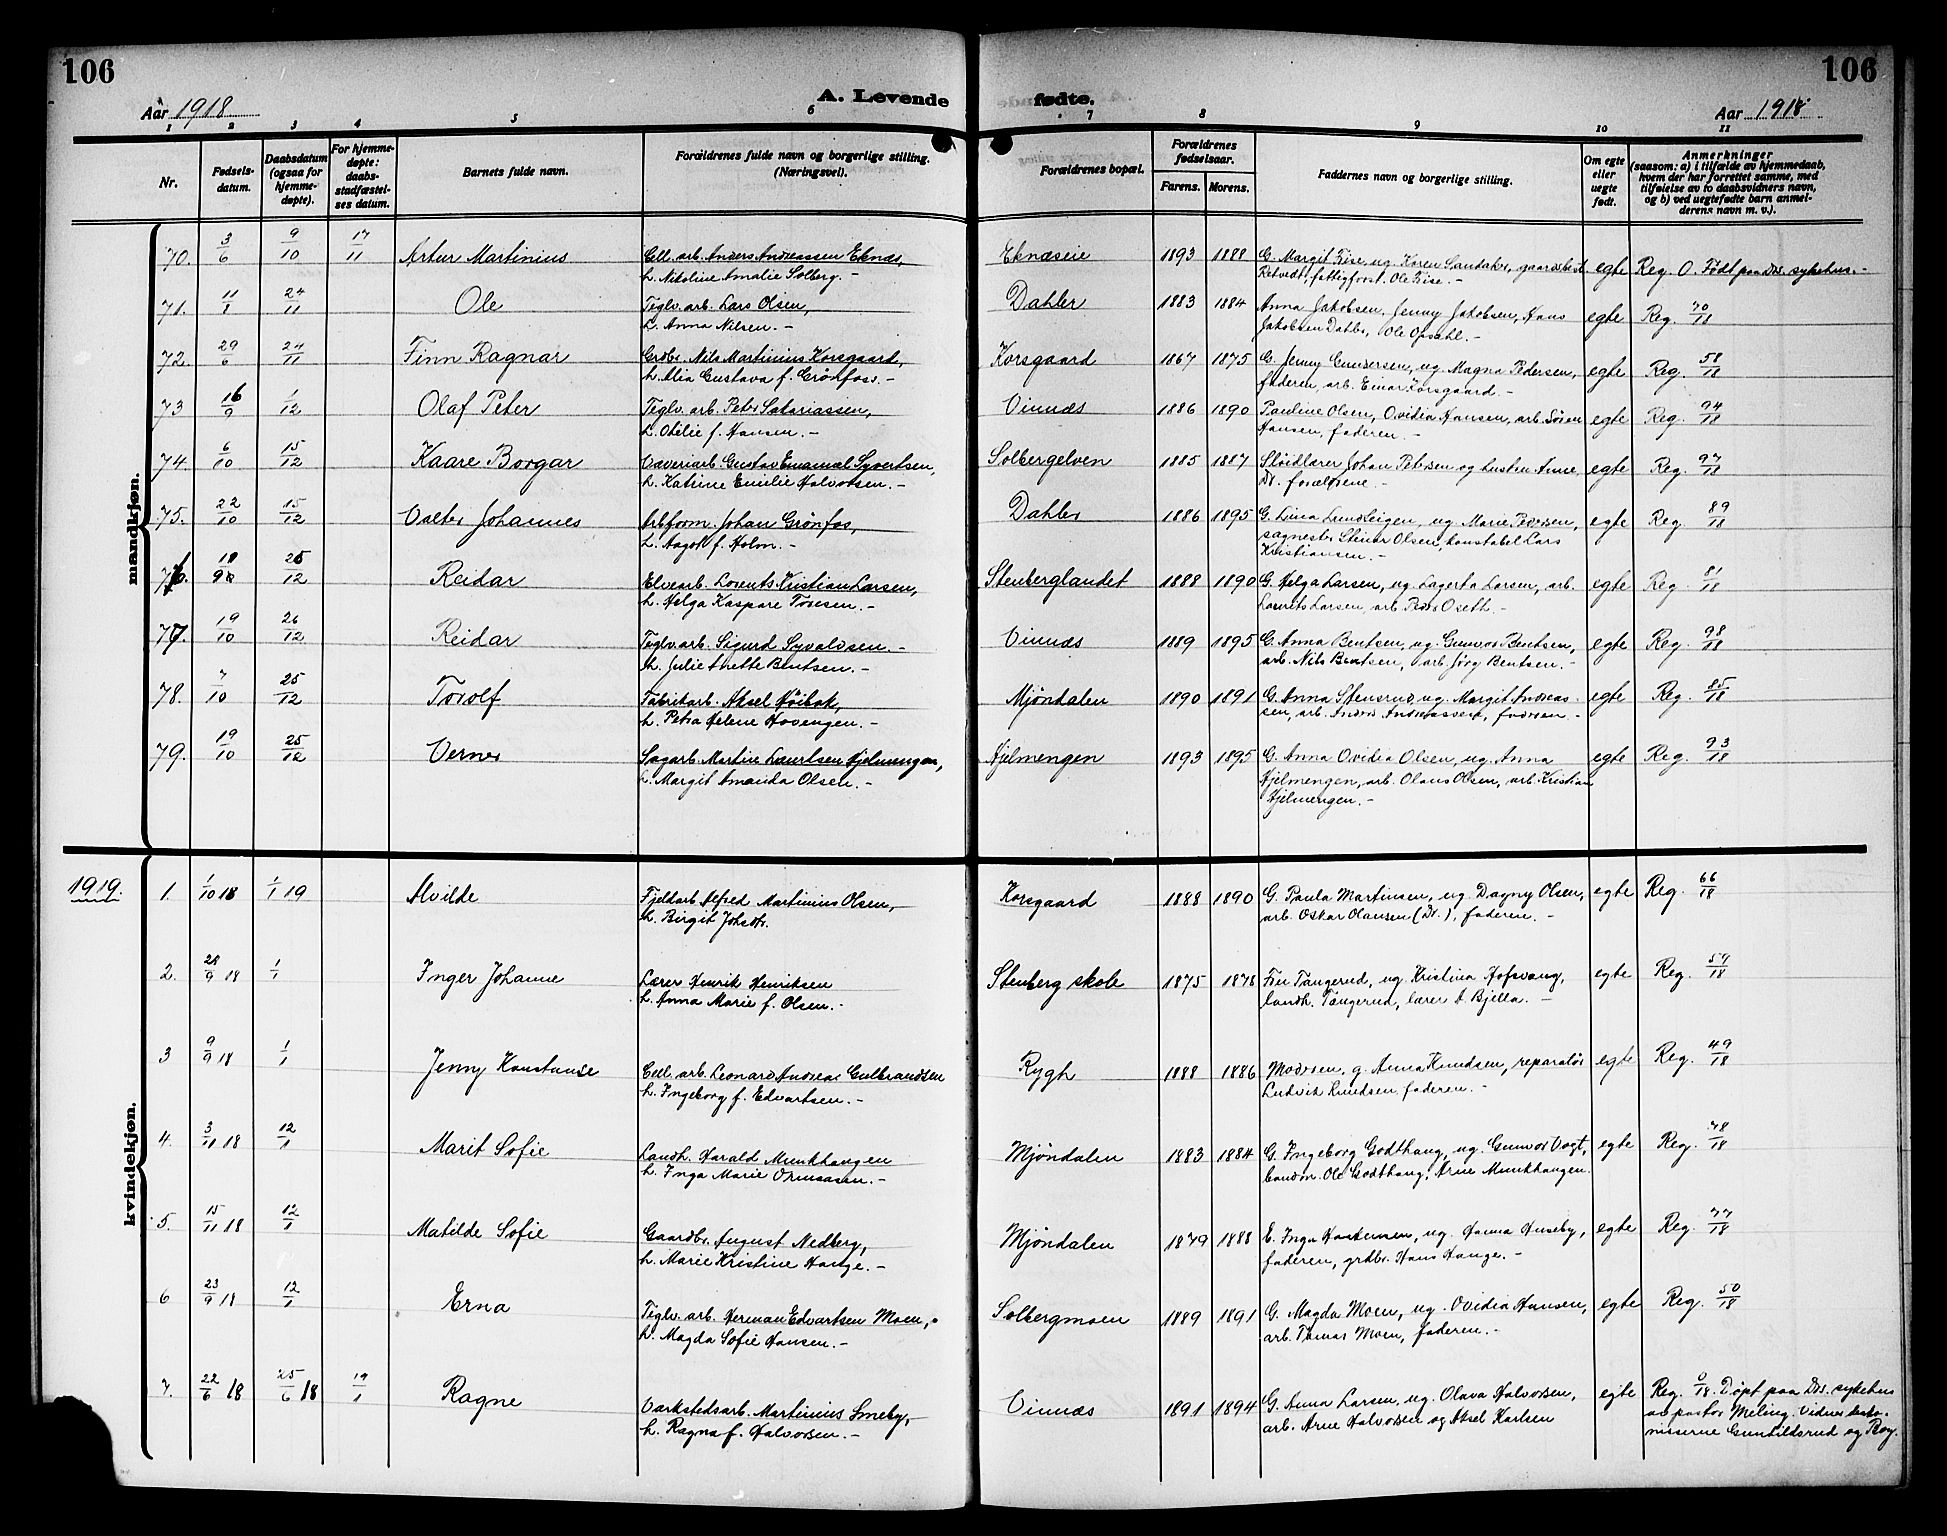 106
106
Aar 1918
A. Levende
fødte.
Aar 1918
1 2 3 4 5 6 7 8 9 10 11
Nr.
Fødsels-
datum.
Daabsdatum
(ogsaa for
hjemme-
døpte).
For hjemme-
døpte:
daabs-
stadfæstel-
ses datum.
Barnets fulde navn.
Forældrenes fulde navn og borgerlige stilling.
(Næringsvei).
Forældrenes bopæl.
Forældrenes
fødselsaar.
Farens. Morens.
Faddernes navn og borgerlige stilling.
Om egte
eller
uegte
født.
Anmerkninger
(saasom: a) i tilfælde av hjemmedaab,
hvem der har forrettet samme, med
tilføielse av to daabsvidners navn,
og b) ved uegtefødte barn anmel-
derens navn m. v.).
mandkjøn.
70. 3/6 9/10 17/11 Artur Martinius Cell. arb. Anders Andreassen Eknæs, Eknæseie 1893 1888 G. Margit Frise, ug. Karen Sandaker, egte Reg. 0. Født paa Drs. sykehus. -
h. Nikoline Amalie Solberg. - fattigforst. Ole Frise. -
71. 11/1 24/11 Ole Teglv. arb. Lars Olsen, Dahler 1883 1884 Anna Jakobsen, Jenny Jakobsen, Hans egte Reg. 70/18
h. Anna Nilsen. - Jakobsen Dahler, Ole Opsahl. -
72. 29/6 24/11 Finn Ragnar Grdbr. Nils Martinius Korsgaard, Korsgaard 1867 1875 G. Jenny Gundersen, ug. Magna Pedersen, egte Reg. 58/18
h. Alia Gustava f. Grønfoss. - faderen, arb. Einar Korsgaard. -
73 16/9 1/12 Olaf Peter Teglv. arb. Peter Sakariassen, Vinnæs 1886 1890 Pauline Olsen, Ovidia Hansen, arb. Søren egte Reg. 94/18
h. Otilie f. Hansen. - Hansen, faderen. -
74. 6/10 15/12 Kaare Borgar Væveriarb. Gustav Emanuel Syvertsen, Solbergelven 1885 1887 Sløidlærer Johan Petersen og hustru Anne, egte Reg. 97/18
h. Katrine Emilie Halvorsen. - Dr. forældrene. -
75. 22/10 15/12 Valter Johannes Arbform. Johan Grønfos, Dahler 1886 1895 G. Lina Lundteigen, ug. Marie Pedersen, egte Reg. 89/18
h. Aagot f. Holm. - sagmester Steinar Olsen, konstabel Lars
Kristiansen. -
76. 26/12 Reidar Elvearb. Lorents Kristian Larsen, Stenberglandet 1888 1890 G. Helga Larsen, ug. Lagerta Larsen, arb. egte Reg. 81/18
h. Helga Kaspare Toresen. - Laurits Larsen, arb. Peder Oseth. -
77. 19/10 26/12 Reidar Teglv. arb. Sigurd Syvaldsen. - Vinnæs 1889 1895 G. Anna Bentsen, ug. Gunvor Bentsen, egte Reg. 98/18
h. Julie Anette Bentsen. - arb. Nils Bentsen, arb. Jørg Bentsen. -
78. 7/10 25/12 Torolf Fabrikarb. Aksel Høibak, Mjøndalen 1890 1891 G. Anna Stensrud, ug. Margit Andreas- egte Reg. 85/18
h. Petra Helene Hovengen. - sen, arb. Anders Andreassen, faderen. -
79. 19/10 25/12 Verner Sagarb. Martin Lauritsen Hjelmengen, Hjelmengen 1893 1895 G. Anna Ovidia Olsen, ug. Anna egte Reg. 93/18
h. Margit Amanda Olsen. - Hjelmengen, arb. Olaus Olsen, arb. Kristian
Hjelmengen. -
1919.
kvindekjøn.
1. 1/10 18 1/1 19 Alvilde Fjeldarb. Alfred Martinius Olsen, Korsgaard 1888 1890 G. Paula Martinsen, ug. Dagny Olsen, egte Reg. 66/18
h. Birgit Johsdtr. arb. Oskar Olausen (Dr.), faderen. -
2. 28/9 18 1/1 Inger Johanne Lærer Henrik Henriksen Stenberg skole 1875 1878 Fru Tangerud, ug. Kristina Hofsvang, egte Reg. 54/18
h. Anna Marie f. Olsen. - landh. Tangerud, lærer A Bjella. -
3 9/9 18 1/1 Jenny Konstanse Cell. arb. Leonard Andreas Gulbrandsen Rygh 1888 1886 Moderen, g. Anna Knudsen, reparatør egte Reg. 49/18
h. Ingeborg f. Edvartsen. - Ludvik Knudsen, faderen. -
4. 3/11 18 12/1 Marit Sofie Landh. Harald Munkhaugen Mjøndalen 1883 1884 G. Ingeborg Godthaug, ug. Gunvor Vogt, egte Reg. 78/18
h. Inga Marie Ormaasen. - landm. Ole Godthaug, Arne Munkhaugen.
5. 15/11 18 12/1 Matilde Sofie Gaardbr. August Nedberg, Mjøndalen 1879 1888 E. Inga Hortensen, ug. Hanna Huseby, egte Reg. 77/18
h. Marie Kristine Hauge. - faderen, grdbr. Hans Hauge. -
6 23/9 18 12/1 Erna Teglv. arb. Herman Edvartsen Moen, Solbergmoen 1889 1891 G. Magda Moen, ug. Ovidia Hansen, egte Reg. 50/18
h. Magda Sofie Hansen. - arb. Tomas Moen, faderen. -
7. 22/6 18 25/6 18 19/1 Ragne Værkstedsarb. Martinius Smeby, Vinnæs 1891 1894 G. Anna Larsen, ug. Olava Halvorsen, egte Reg. 0/18. Døpt paa Drs. sykehus
h. Ragna f. Halvorsen. - arb. Arne Halvorsen og Aksel Karlsen av pastor Meling. Vidner diako-
nisserne Gunhildsrud og Boy.